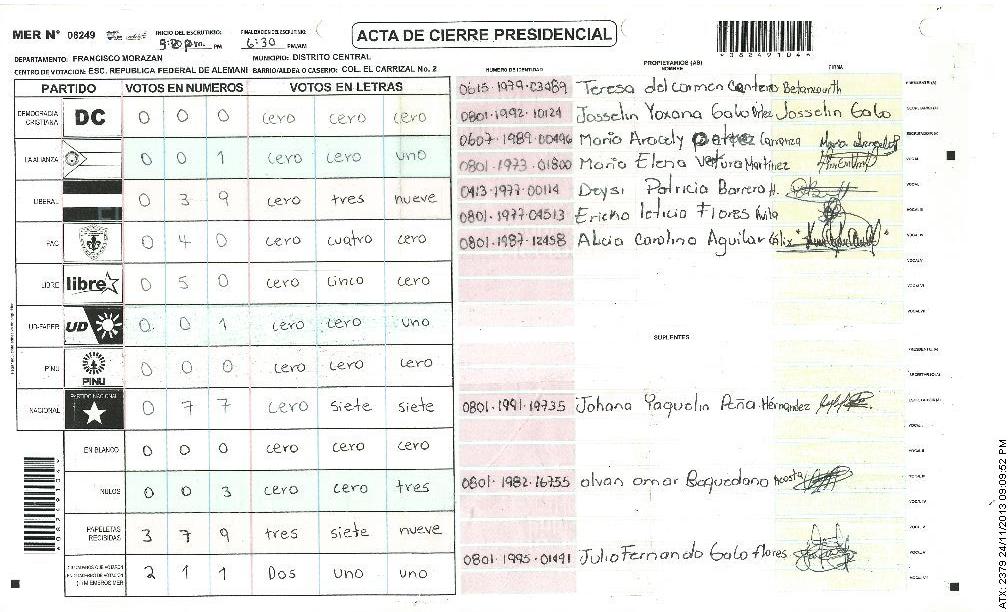 MER N° 08249 INICIO DEL ESCRUTINIO: PM FINALIZACION DEL ESCRUTINIO: 6:30 PM/AM
ACTA DE CIERRE PRESIDENCIAL
DEPARTAMENTO: FRANCISCO MORAZAN MUNICIPIO: DISTRITO CENTRAL
CENTRO DE VOTACION: ESC. REPUBLICA FEDERAL DE ALEMANI BARRIO/ALDEA O CASERIO: COL. EL CARRIZAL No. 2
PARTIDO VOTOS EN NUMEROS VOTOS EN LETRAS
DEMOCRACIA CRISTIANA DC 0 0 0 cero cero cero
LA ALIANZA 0 0 1 cero cero uno
LIBERAL 0 3 9 cero tres nueve
PAC 0 4 0 cero cuatro cero
LIBRE libre 0 5 0 cero cinco cero
UD-FAPER UD 0 0 1 cero cero uno
PINU PINU 0 0 0 cero cero cero
NACIONAL PARTIDO NACIONAL 0 7 7 cero siete siete
EN BLANCO 0 0 0 cero cero cero
NULOS 0 0 3 cero cero tres
PAPELETAS RECIBIDAS 3 7 9 tres siete nueve
2 1 1 Dos uno uno
NUMERO DE IDENTIDAD PROPIETARIOS (AS) NOMBRE FIRMA
0615-1979-03489 Teresa del carmen Betancourth
0801-1992-10124 Josselin Yoxana Galo Josselin Galo
0607-1989-00496 Maria Aracely Carranza
0801-1973-01800 Maria Elena Ventura Martinez
0413-1977-00114 Deysi Patricia Barrera H.
0801-1977-04513 Ericka leticia Flores Avila
0801-1987-12458 Alicia Carolina Aguilar
SUPLENTES
0801-1991-19735 Johana Yaquelin Peña Hernández
0801-1982-16755 olvan omar Baquedano Acosta
0801-1995-01491 Julio Fernando Galo flores
ATX: 2379 24/11/2013 09:09:52 PM